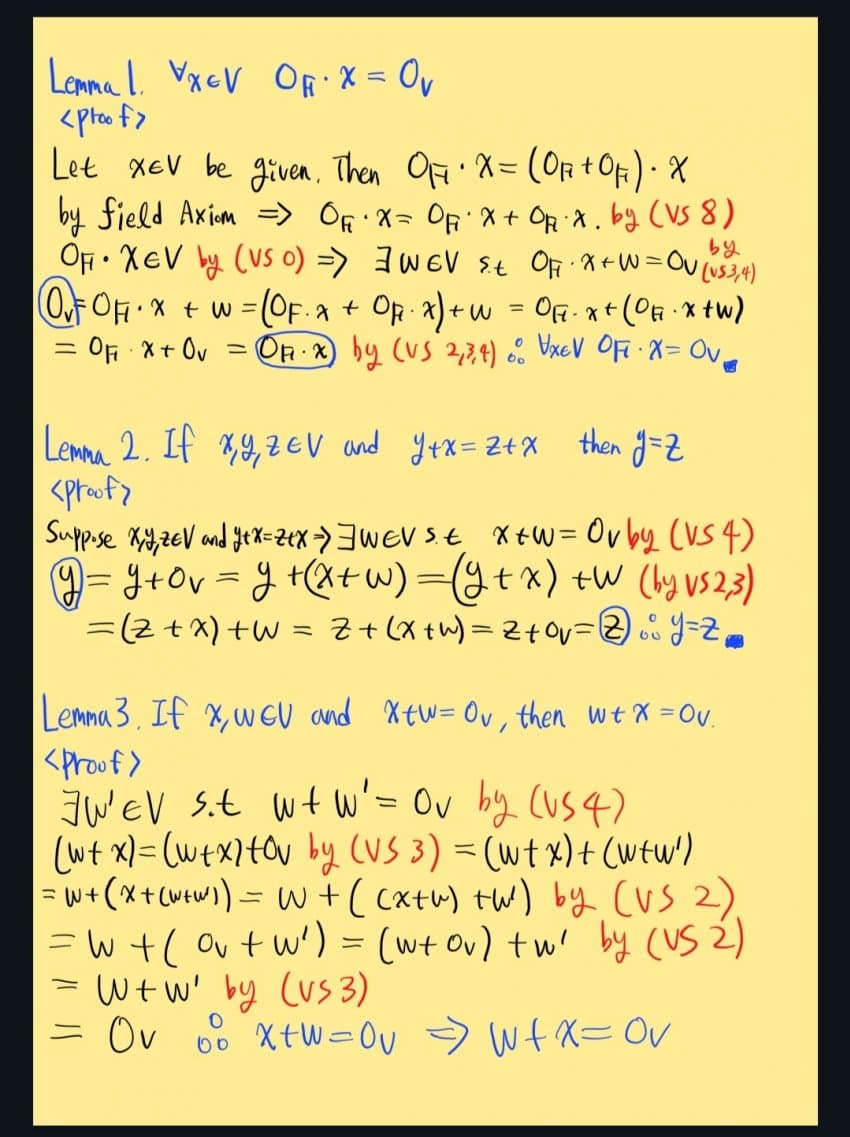 Lemma 1. ∀x∈V 0_F · x = 0_V
<proof>
Let x∈V be given. Then 0_F · x = (0_F + 0_F) · x
by field Axiom => 0_F · x = 0_F · x + 0_F · x. by (VS 8)
0_F · x∈V by (VS 0) => ∃w∈V s.t 0_F · x + w = 0_V by (VS 3,4)
0_V = 0_F · x + w = (0_F · x + 0_F · x) + w = 0_F · x + (0_F · x + w)
= 0_F · x + 0_V = 0_F · x by (VS 2,3,4) ∴ ∀x∈V 0_F · x = 0_V
Lemma 2. If x,y,z∈V and y+x = z+x then y=z
<proof>
Suppose x,y,z∈V and y+x=z+x => ∃w∈V s.t x+w = 0_V by (VS 4)
y = y+0_V = y+(x+w) = (y+x)+w (by VS 2,3)
= (z+x)+w = z+(x+w) = z+0_V = z ∴ y=z
Lemma 3. If x,w∈V and x+w = 0_V, then w+x = 0_V.
<proof>
∃w'∈V s.t w+w' = 0_V by (VS 4)
(w+x) = (w+x)+0_V by (VS 3) = (w+x)+(w+w')
= w+(x+(w+w')) = w+((x+w)+w') by (VS 2)
= w+(0_V+w') = (w+0_V)+w' by (VS 2)
= w+w' by (VS 3)
= 0_V ∴ x+w=0_V => w+x=0_V